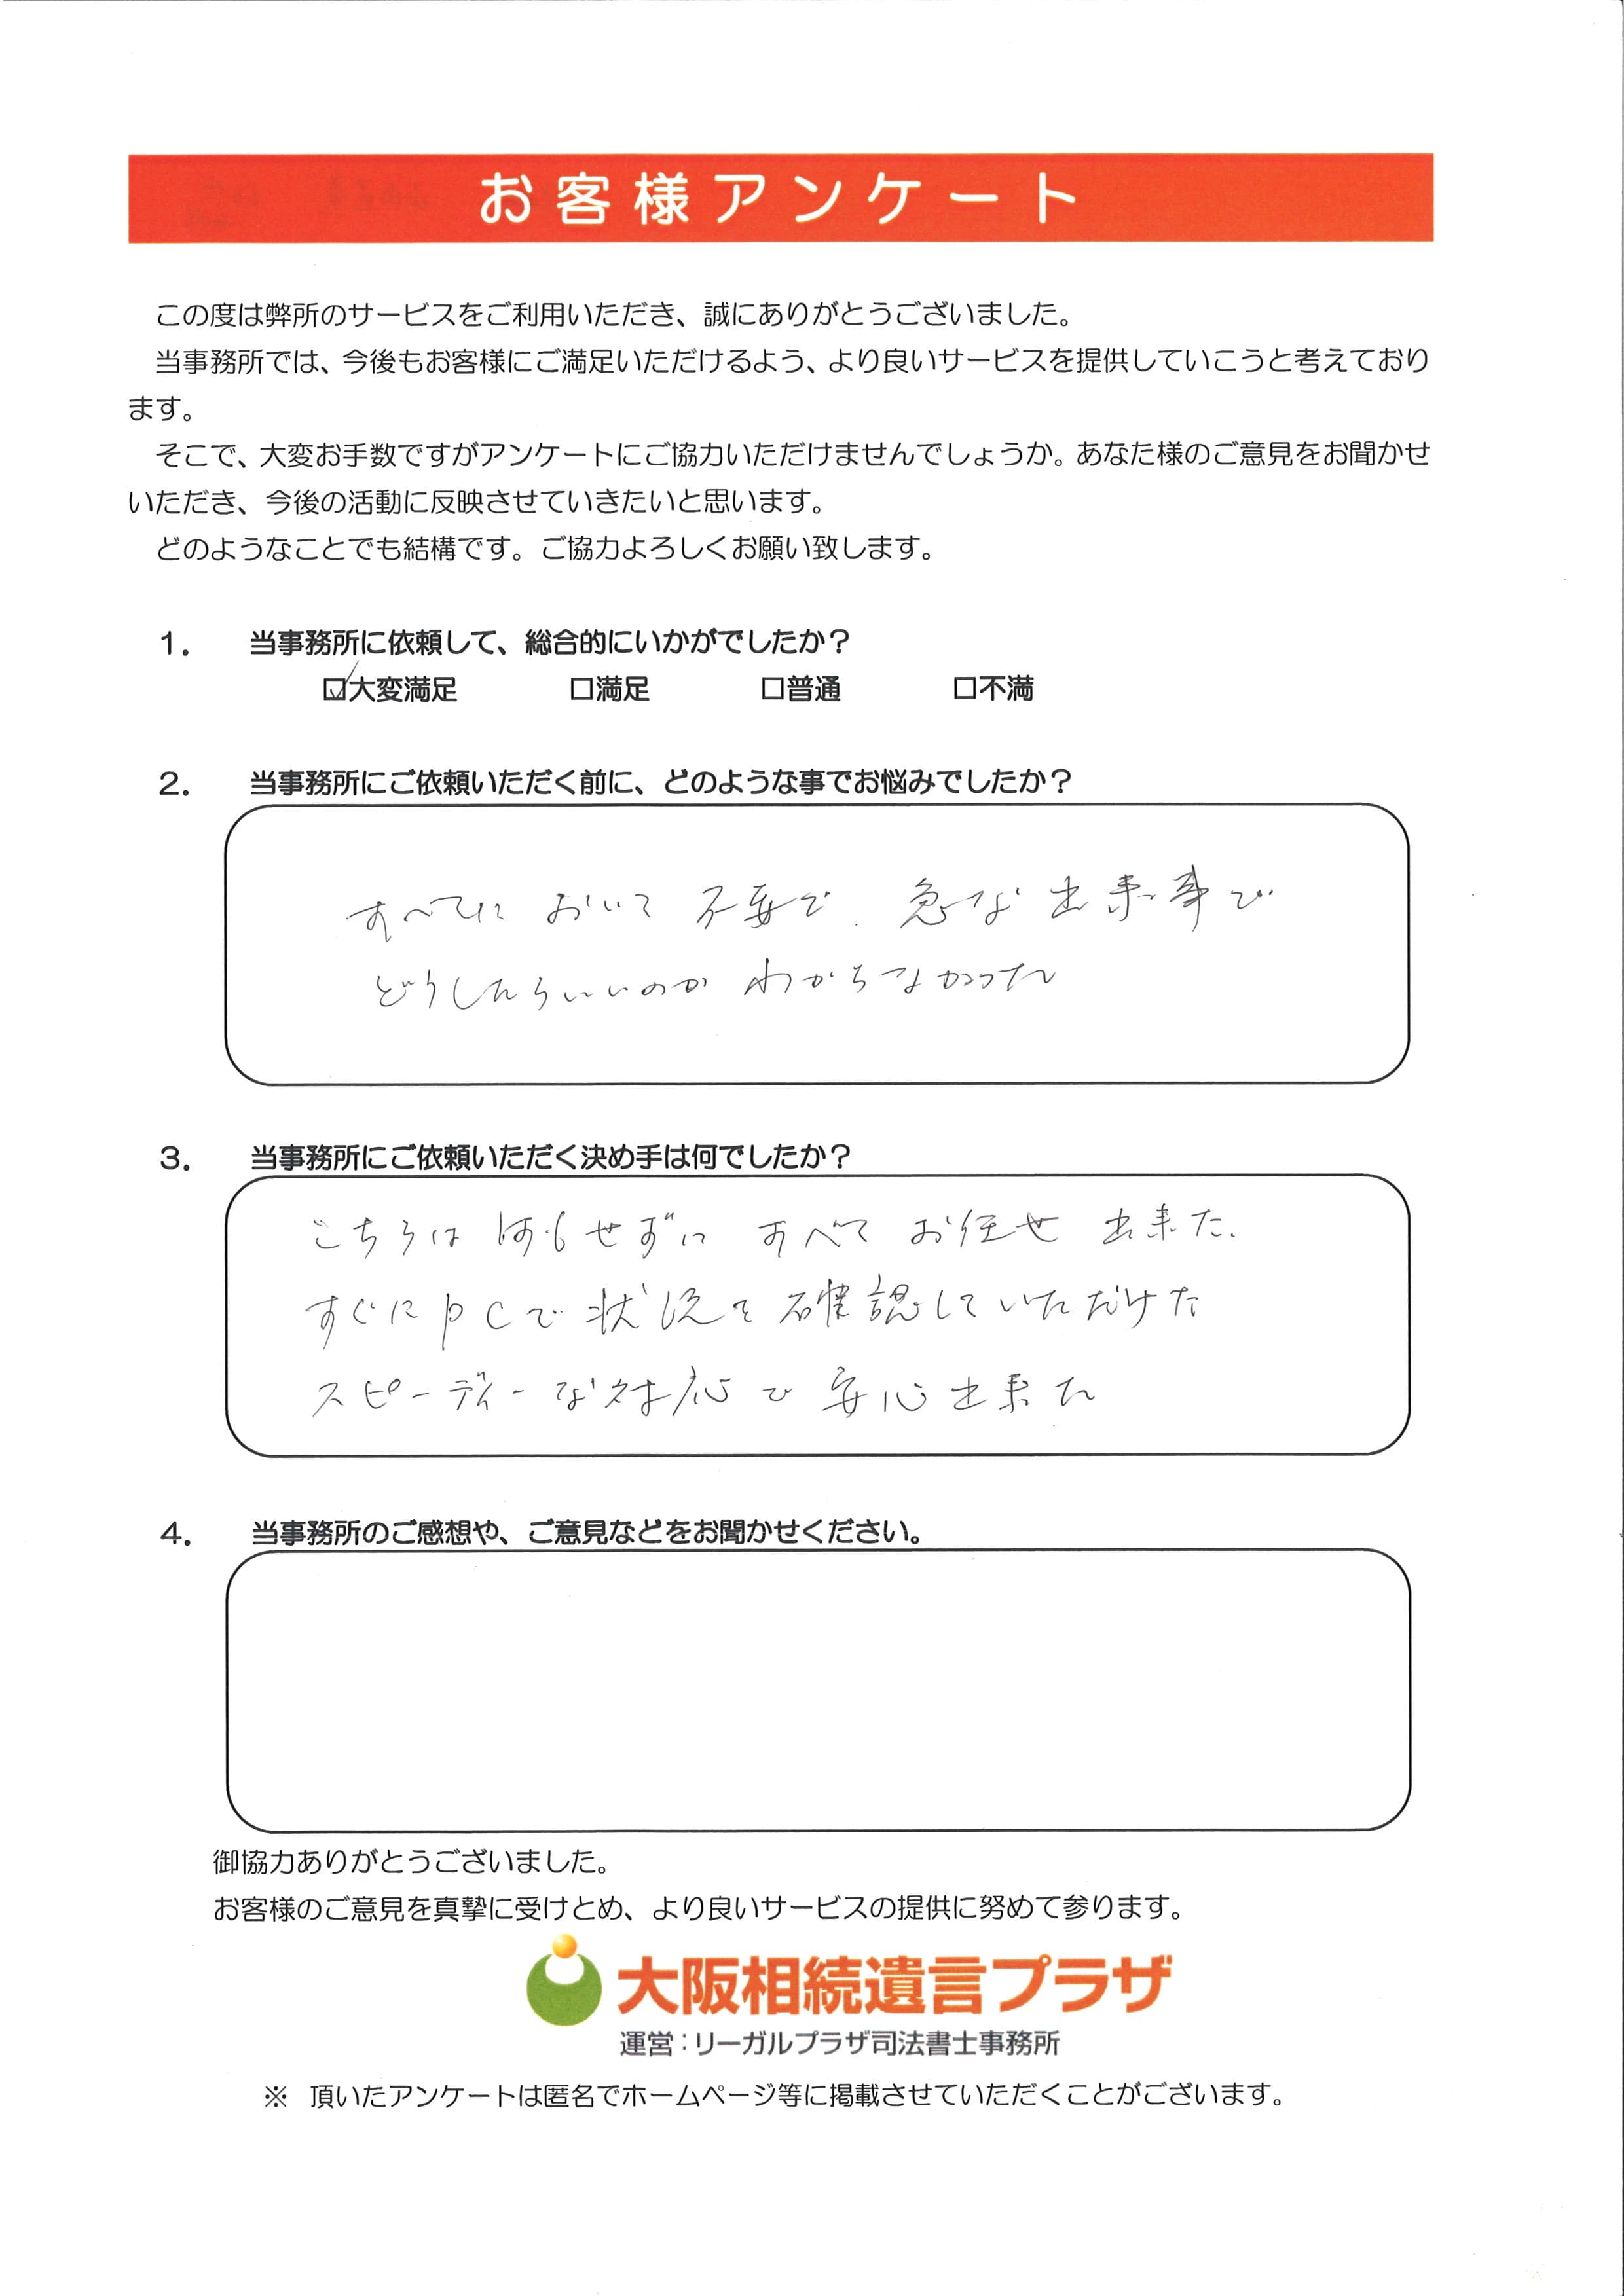 お客様アンケート
この度は弊所のサービスをご利用いただき、誠にありがとうございました。
当事務所では、今後もお客様にご満足いただけるよう、より良いサービスを提供していこうと考えており
ます。
そこで、大変お手数ですがアンケートにご協力いただけませんでしょうか。あなた様のご意見をお聞かせ
いただき、今後の活動に反映させていきたいと思います。
どのようなことでも結構です。ご協力よろしくお願い致します。
1. 当事務所に依頼して、総合的にいかがでしたか?
☑大変満足 □満足 □普通 □不満
2. 当事務所にご依頼いただく前に、どのような事でお悩みでしたか?
すべてにおいて不安で、急な出来事で
どうしたらいいのかわからなかった
3. 当事務所にご依頼いただく決め手は何でしたか?
こちらは何もせずにすべてお任せ出来た、
すぐにPCで状況を確認していただけた
スピーディーな対応で安心出来た
4. 当事務所のご感想や、ご意見などをお聞かせください。
御協力ありがとうございました。
お客様のご意見を真摯に受けとめ、より良いサービスの提供に努めて参ります。
大阪相続遺言プラザ
運営:リーガルプラザ司法書士事務所
※ 頂いたアンケートは匿名でホームページ等に掲載させていただくことがございます。